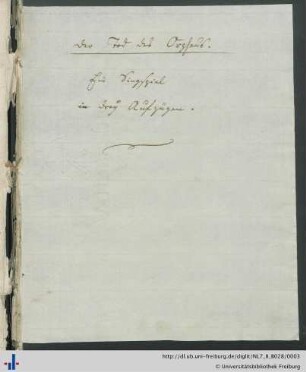 Der Tod des Orpheus.
Ein Singspiel
in drey Aufzügen.
http://dl.ub.uni-freiburg.de/diglit/NL7_II_8028/0003
© Universitätsbibliothek Freiburg